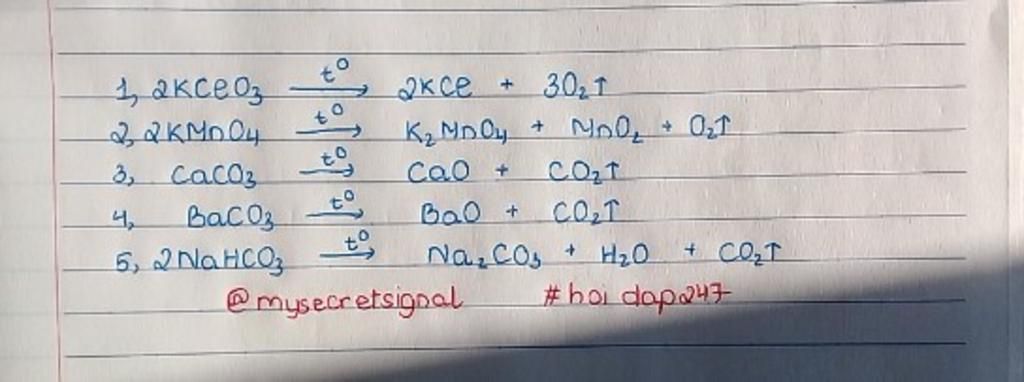 1, 2KClO₃ t⁰→ 2KCl + 3O₂↑
2, 2KMnO₄ t⁰→ K₂MnO₄ + MnO₂ + O₂↑
3, CaCO₃ t⁰→ CaO + CO₂↑
4, BaCO₃ t⁰→ BaO + CO₂↑
5, 2NaHCO₃ t⁰→ Na₂CO₃ + H₂O + CO₂↑
@mysecretsignal #hoi dap247